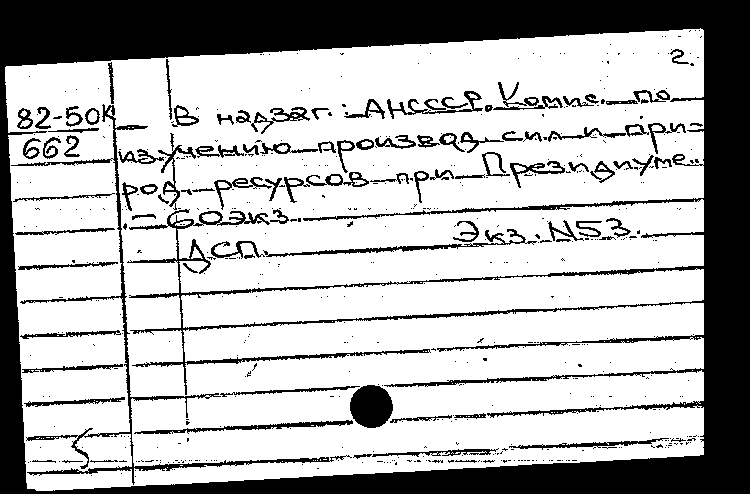 2.
82-50К
662
В надзаг.: АНСССР. Комис. по
изучению производ. сил и при=
род. ресурсов при Президиуме..
.— 60экз.
ДСП. Экз. N53.
5